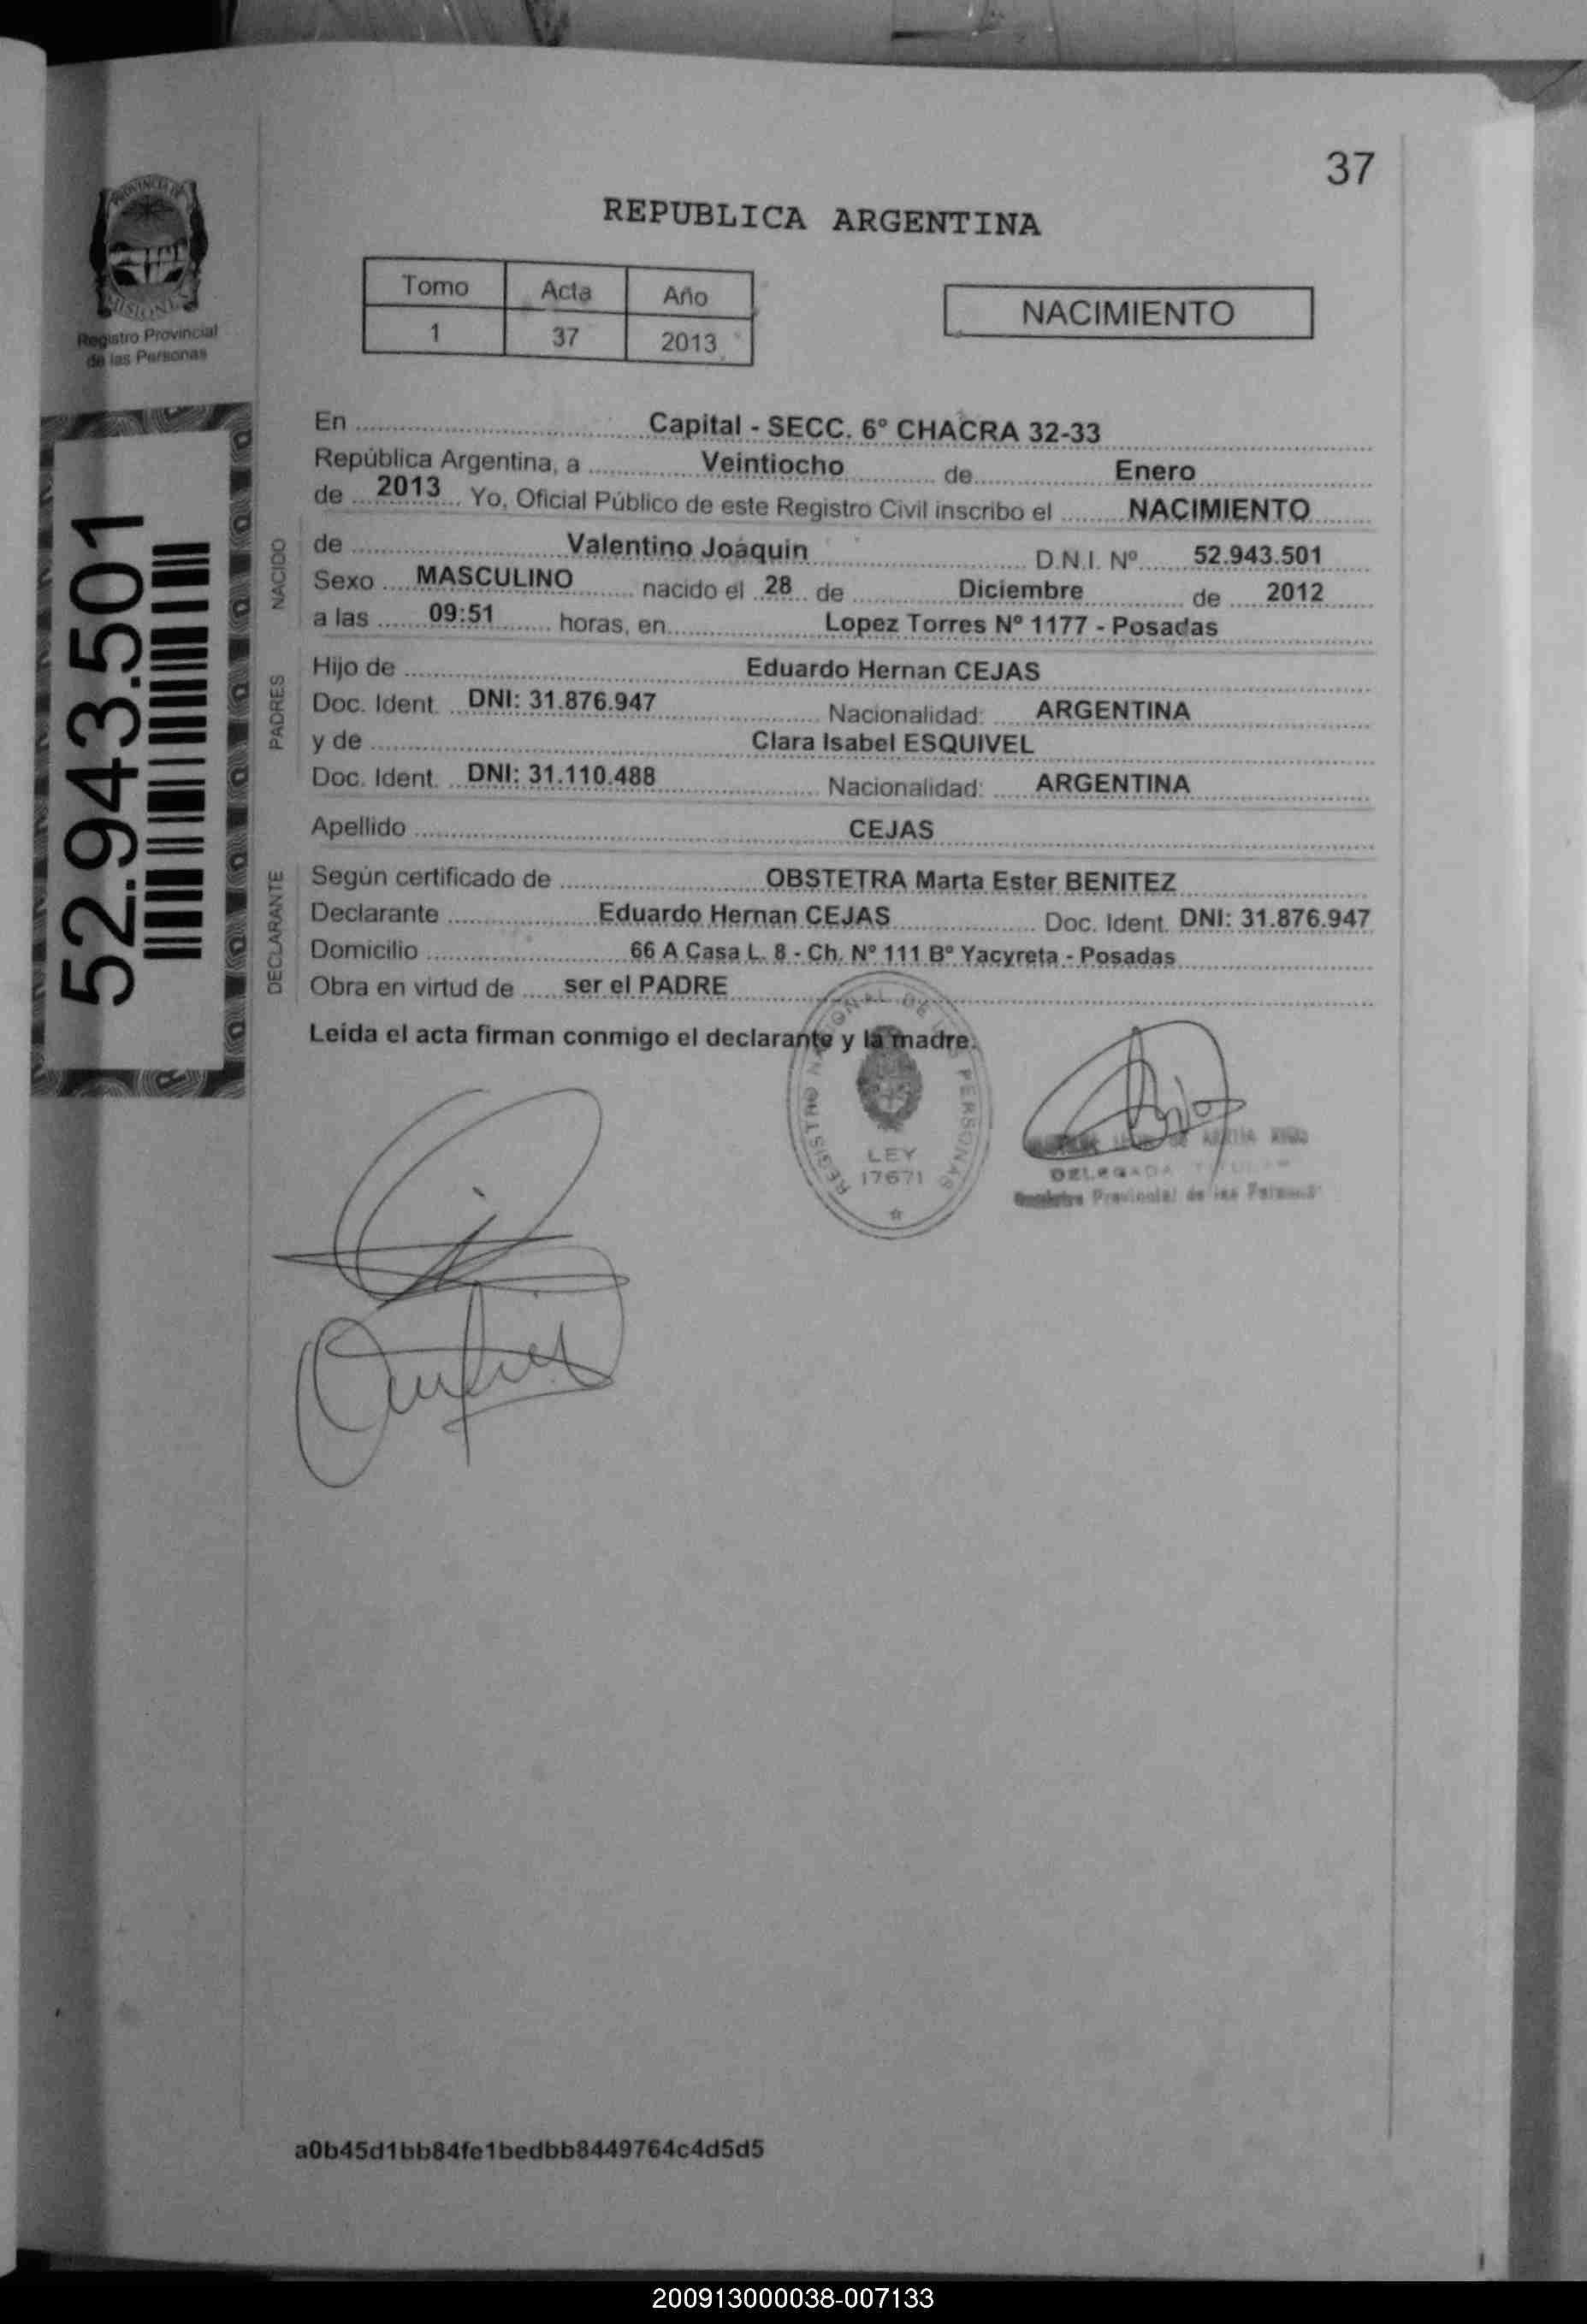 37
PROVINCIA DE
MISIONES
Registro Provincial
de las Personas
REPUBLICA ARGENTINA
Tomo Acta Año
1 37 2013
NACIMIENTO
52.943.501
En Capital - SECC. 6º CHACRA 32-33
República Argentina, a Veintiocho de Enero
de 2013 Yo, Oficial Público de este Registro Civil inscribo el NACIMIENTO
NACIDO
de Valentino Joaquin D.N.I. Nº 52.943.501
Sexo MASCULINO nacido el 28 de Diciembre de 2012
a las 09:51 horas, en Lopez Torres Nº 1177 - Posadas
PADRES
Hijo de Eduardo Hernan CEJAS
Doc. Ident. DNI: 31.876.947 Nacionalidad: ARGENTINA
y de Clara Isabel ESQUIVEL
Doc. Ident. DNI: 31.110.488 Nacionalidad: ARGENTINA
Apellido CEJAS
DECLARANTE
Según certificado de OBSTETRA Marta Ester BENITEZ
Declarante Eduardo Hernan CEJAS Doc. Ident. DNI: 31.876.947
Domicilio 66 A Casa L. 8 - Ch. Nº 111 Bº Yacyreta - Posadas
Obra en virtud de ser el PADRE
Leída el acta firman conmigo el declarante y la madre.
REGISTRO NACIONAL DE LAS PERSONAS
LEY
17671
DELEGADA
Provincial de las
a0b45d1bb84fe1bedbb8449764c4d5d5
200913000038-007133